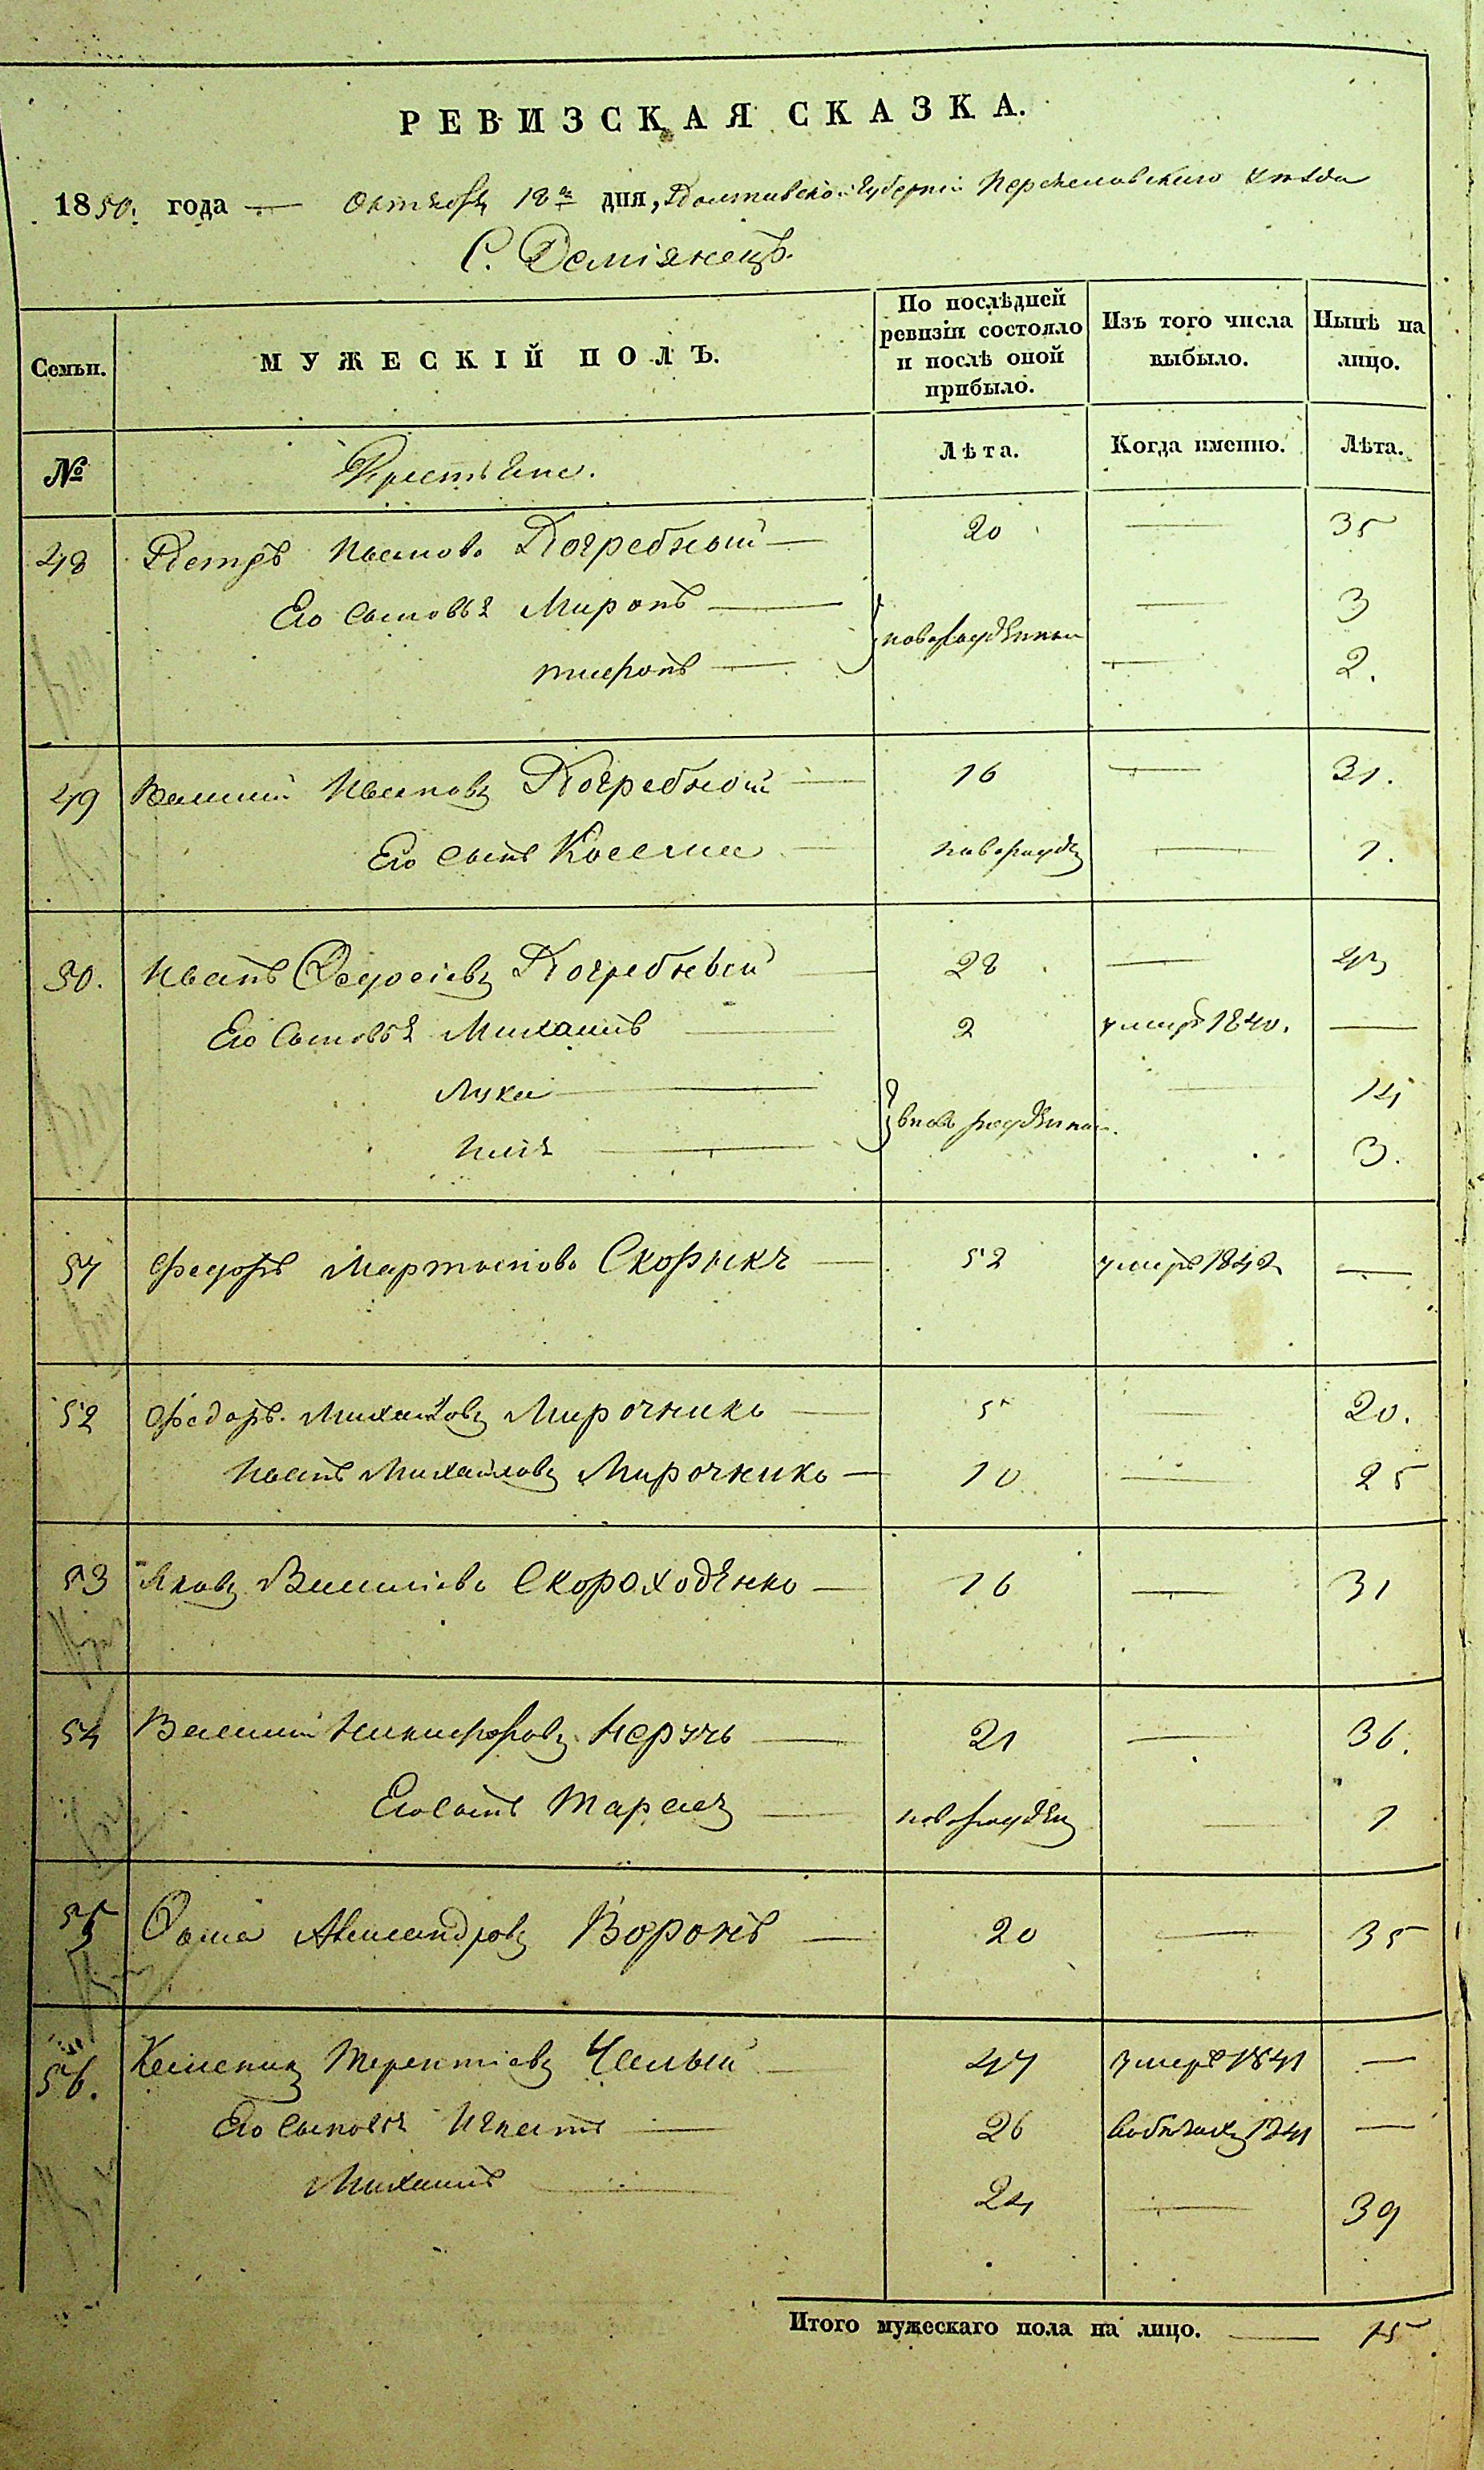 РЕВИЗСКАЯ СКАЗКА.
1850. года — Октября 18го дня, Полтавской Губерніи Переяславскаго уѣзда
С. Деміянецъ.
Семьи. МУЖЕСКІЙ ПОЛЪ. По послѣдней ревизіи состояло и послѣ оной прибыло. Изъ того числа выбыло. Нынѣ на лицо.
№ Крестьяне. Лѣта. Когда именно. Лѣта.
48 Петръ Ивановъ Погребный — 20 — 35
Его сыновья Миронъ — новорожденныи — 3
— — 2.
49 Василий Ивановъ Погребной — 16 — 31.
Его сынъ Косма — новорожд — 1.
50. Иванъ Федосіевъ Погребный — 28 — 43
Его сыновья Михаилъ — 2 умеръ 1840. —
Лука — вновь рожденныи — 14
Илія — 3.
51 Федоръ Мартыновъ Скорикъ — 52 умеръ 1842 —
52 Федоръ Михайловъ Мирочникъ — 5 — 20.
Иванъ Михайловъ Мирочникъ — 10 — 25
53 Яковъ Василіевъ Скороходенко — 16 — 31
54 Василий Никифоровъ Неручь — 21 — 36.
Его сынъ Тарасъ — новорожден — 1
55 Фома Александровъ Воронъ — 20 — 35
56. Терентіевъ Чалый — 47 умеръ 1841 —
Его сыновья Игнатъ — 26 1841 —
Михаилъ — 24 — 39
Итого мужескаго пола на лицо. — 15